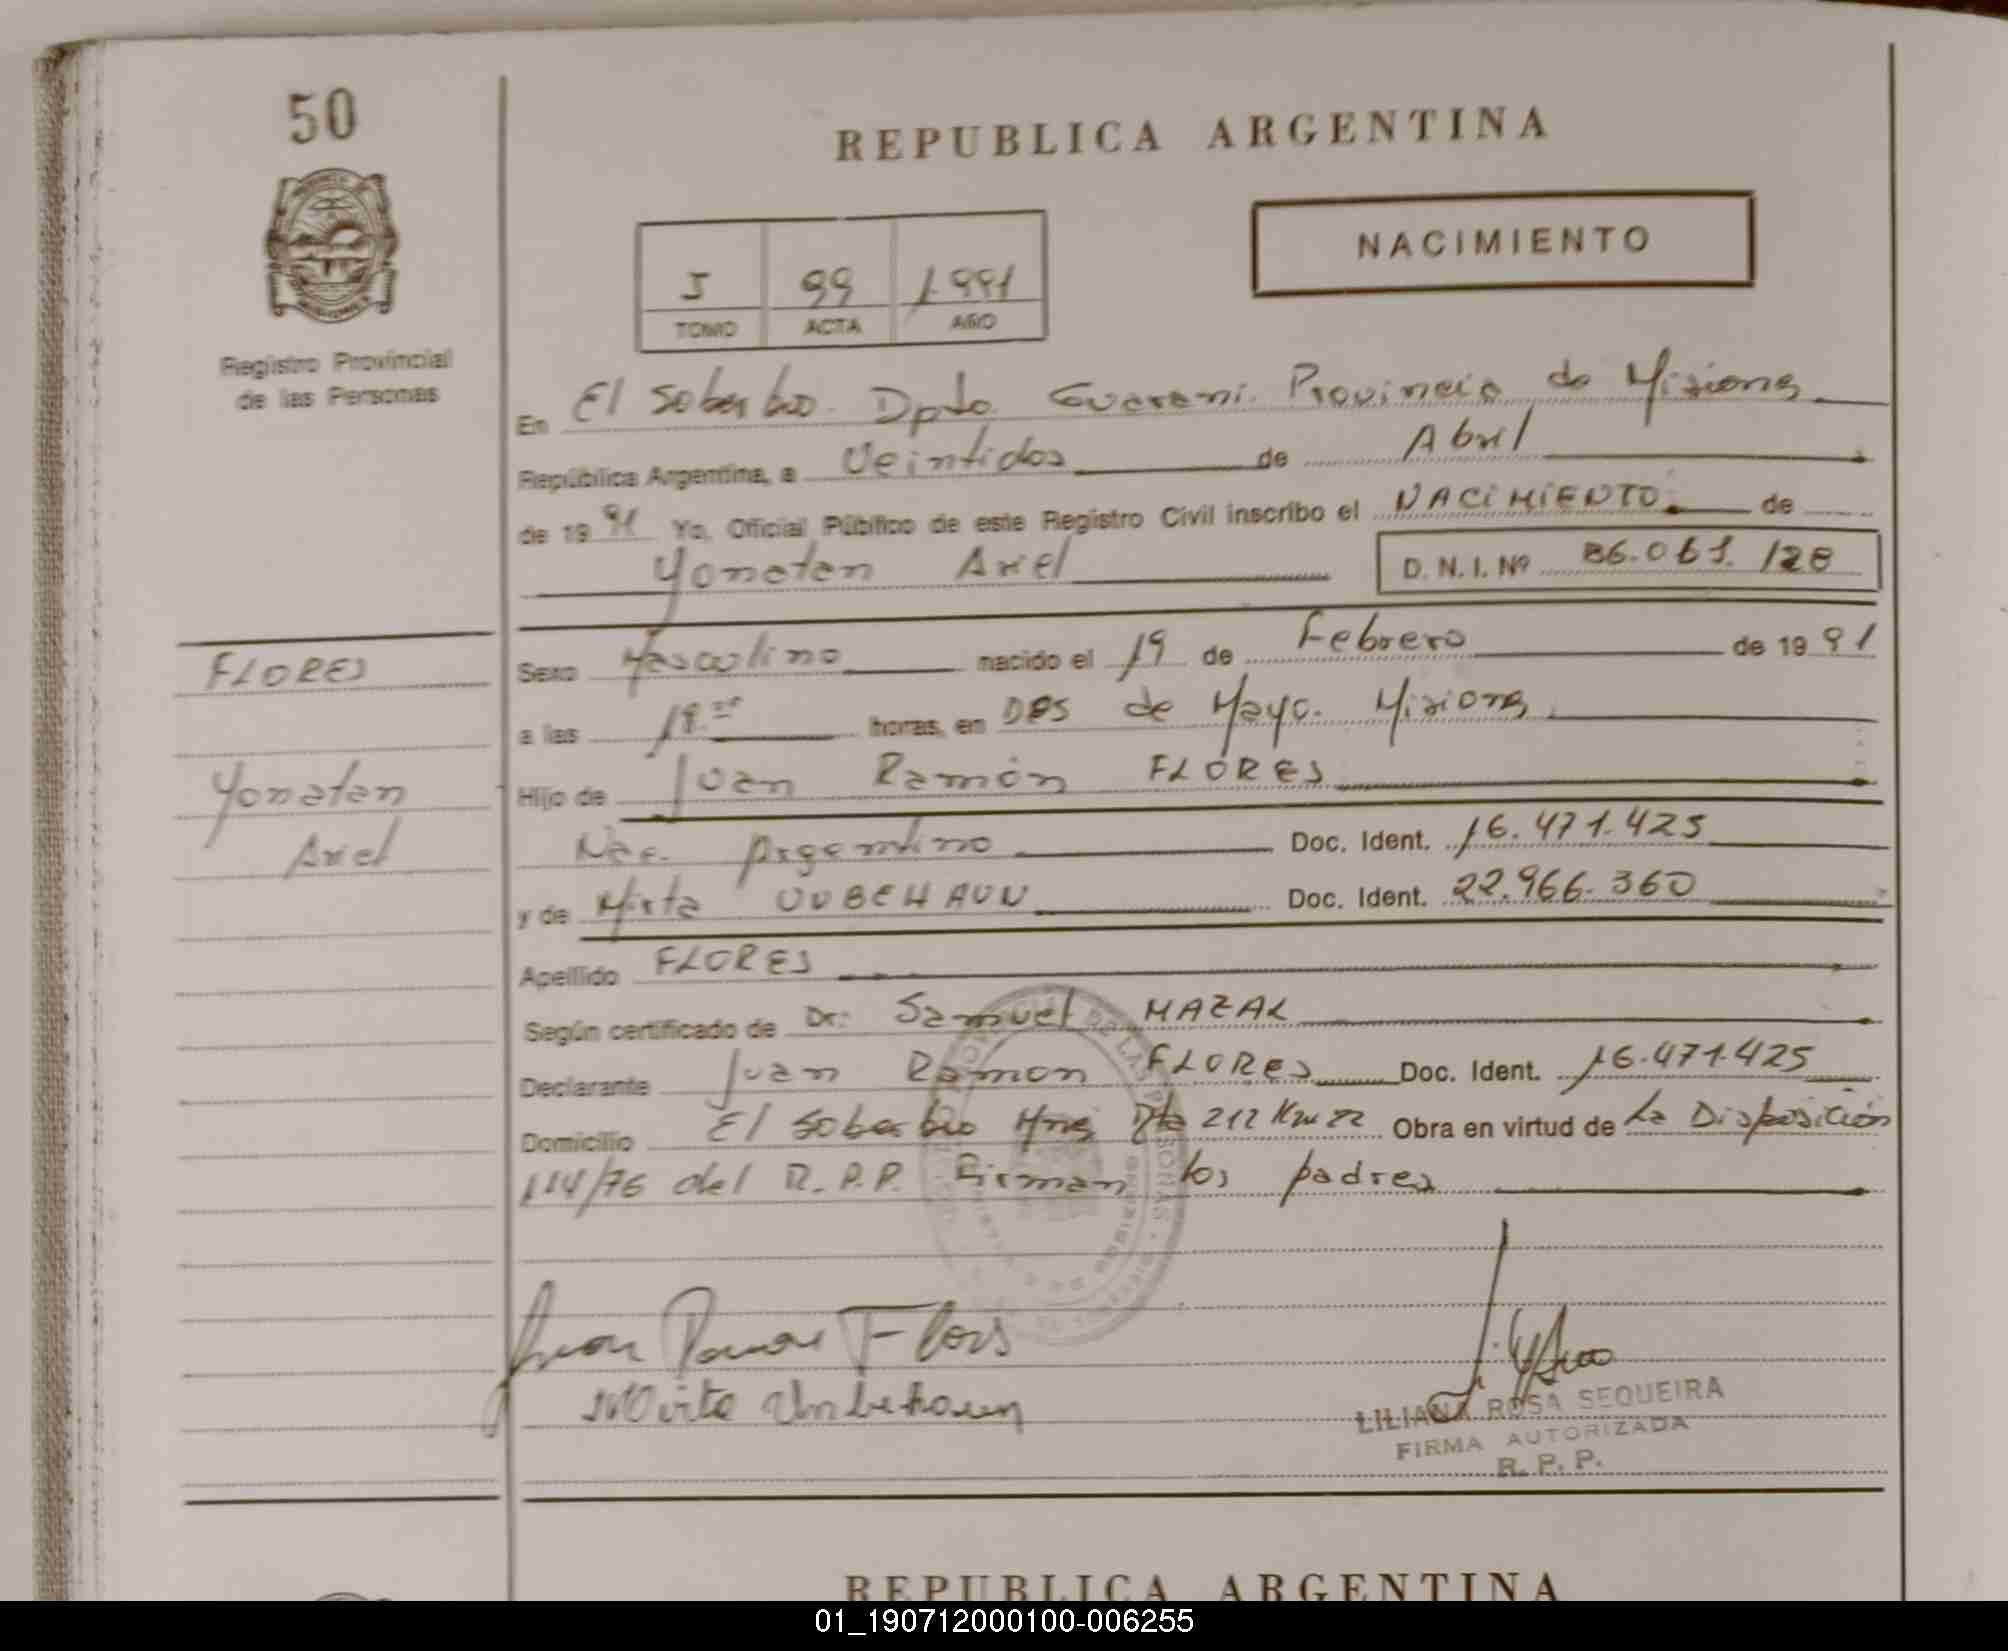 50
REPUBLICA ARGENTINA
NACIMIENTO
I 99 1.991
TOMO ACTA AÑO
Registro Provincial
de las Personas
En El Soberbio. Dpto. Guarani. Provincia de Misiones
República Argentina, a Veintidos de Abril
de 1991 Yo, Oficial Público de este Registro Civil inscribo el NACIMIENTO. de
Yonatan Ariel D. N. I. Nº 36.061.128
FLORES
Yonatan
Ariel
Sexo Masculino nacido el 19 de Febrero de 1991
a las 18. horas, en DOS de Mayo. Misiones
Hijo de Juan Ramón FLORES
Nac. Argentino Doc. Ident. 16.471.425
y de Mirta UNBEHAUN Doc. Ident. 22.966.360
Apellido FLORES
Según certificado de Dr: Samuel MAZAL
Declarante Juan Ramon FLORES Doc. Ident. 16.471.425
Domicilio El Soberbio Mnes Rta 212 Km 22 Obra en virtud de La Disposición
114/76 del R.P.P. Firman los padres
Juan Ramon Flores
Mirta Unbehaun
LILIANA ROSA SEQUEIRA
FIRMA AUTORIZADA
R. P. P.
REPUBLICA ARGENTINA
01_190712000100-006255